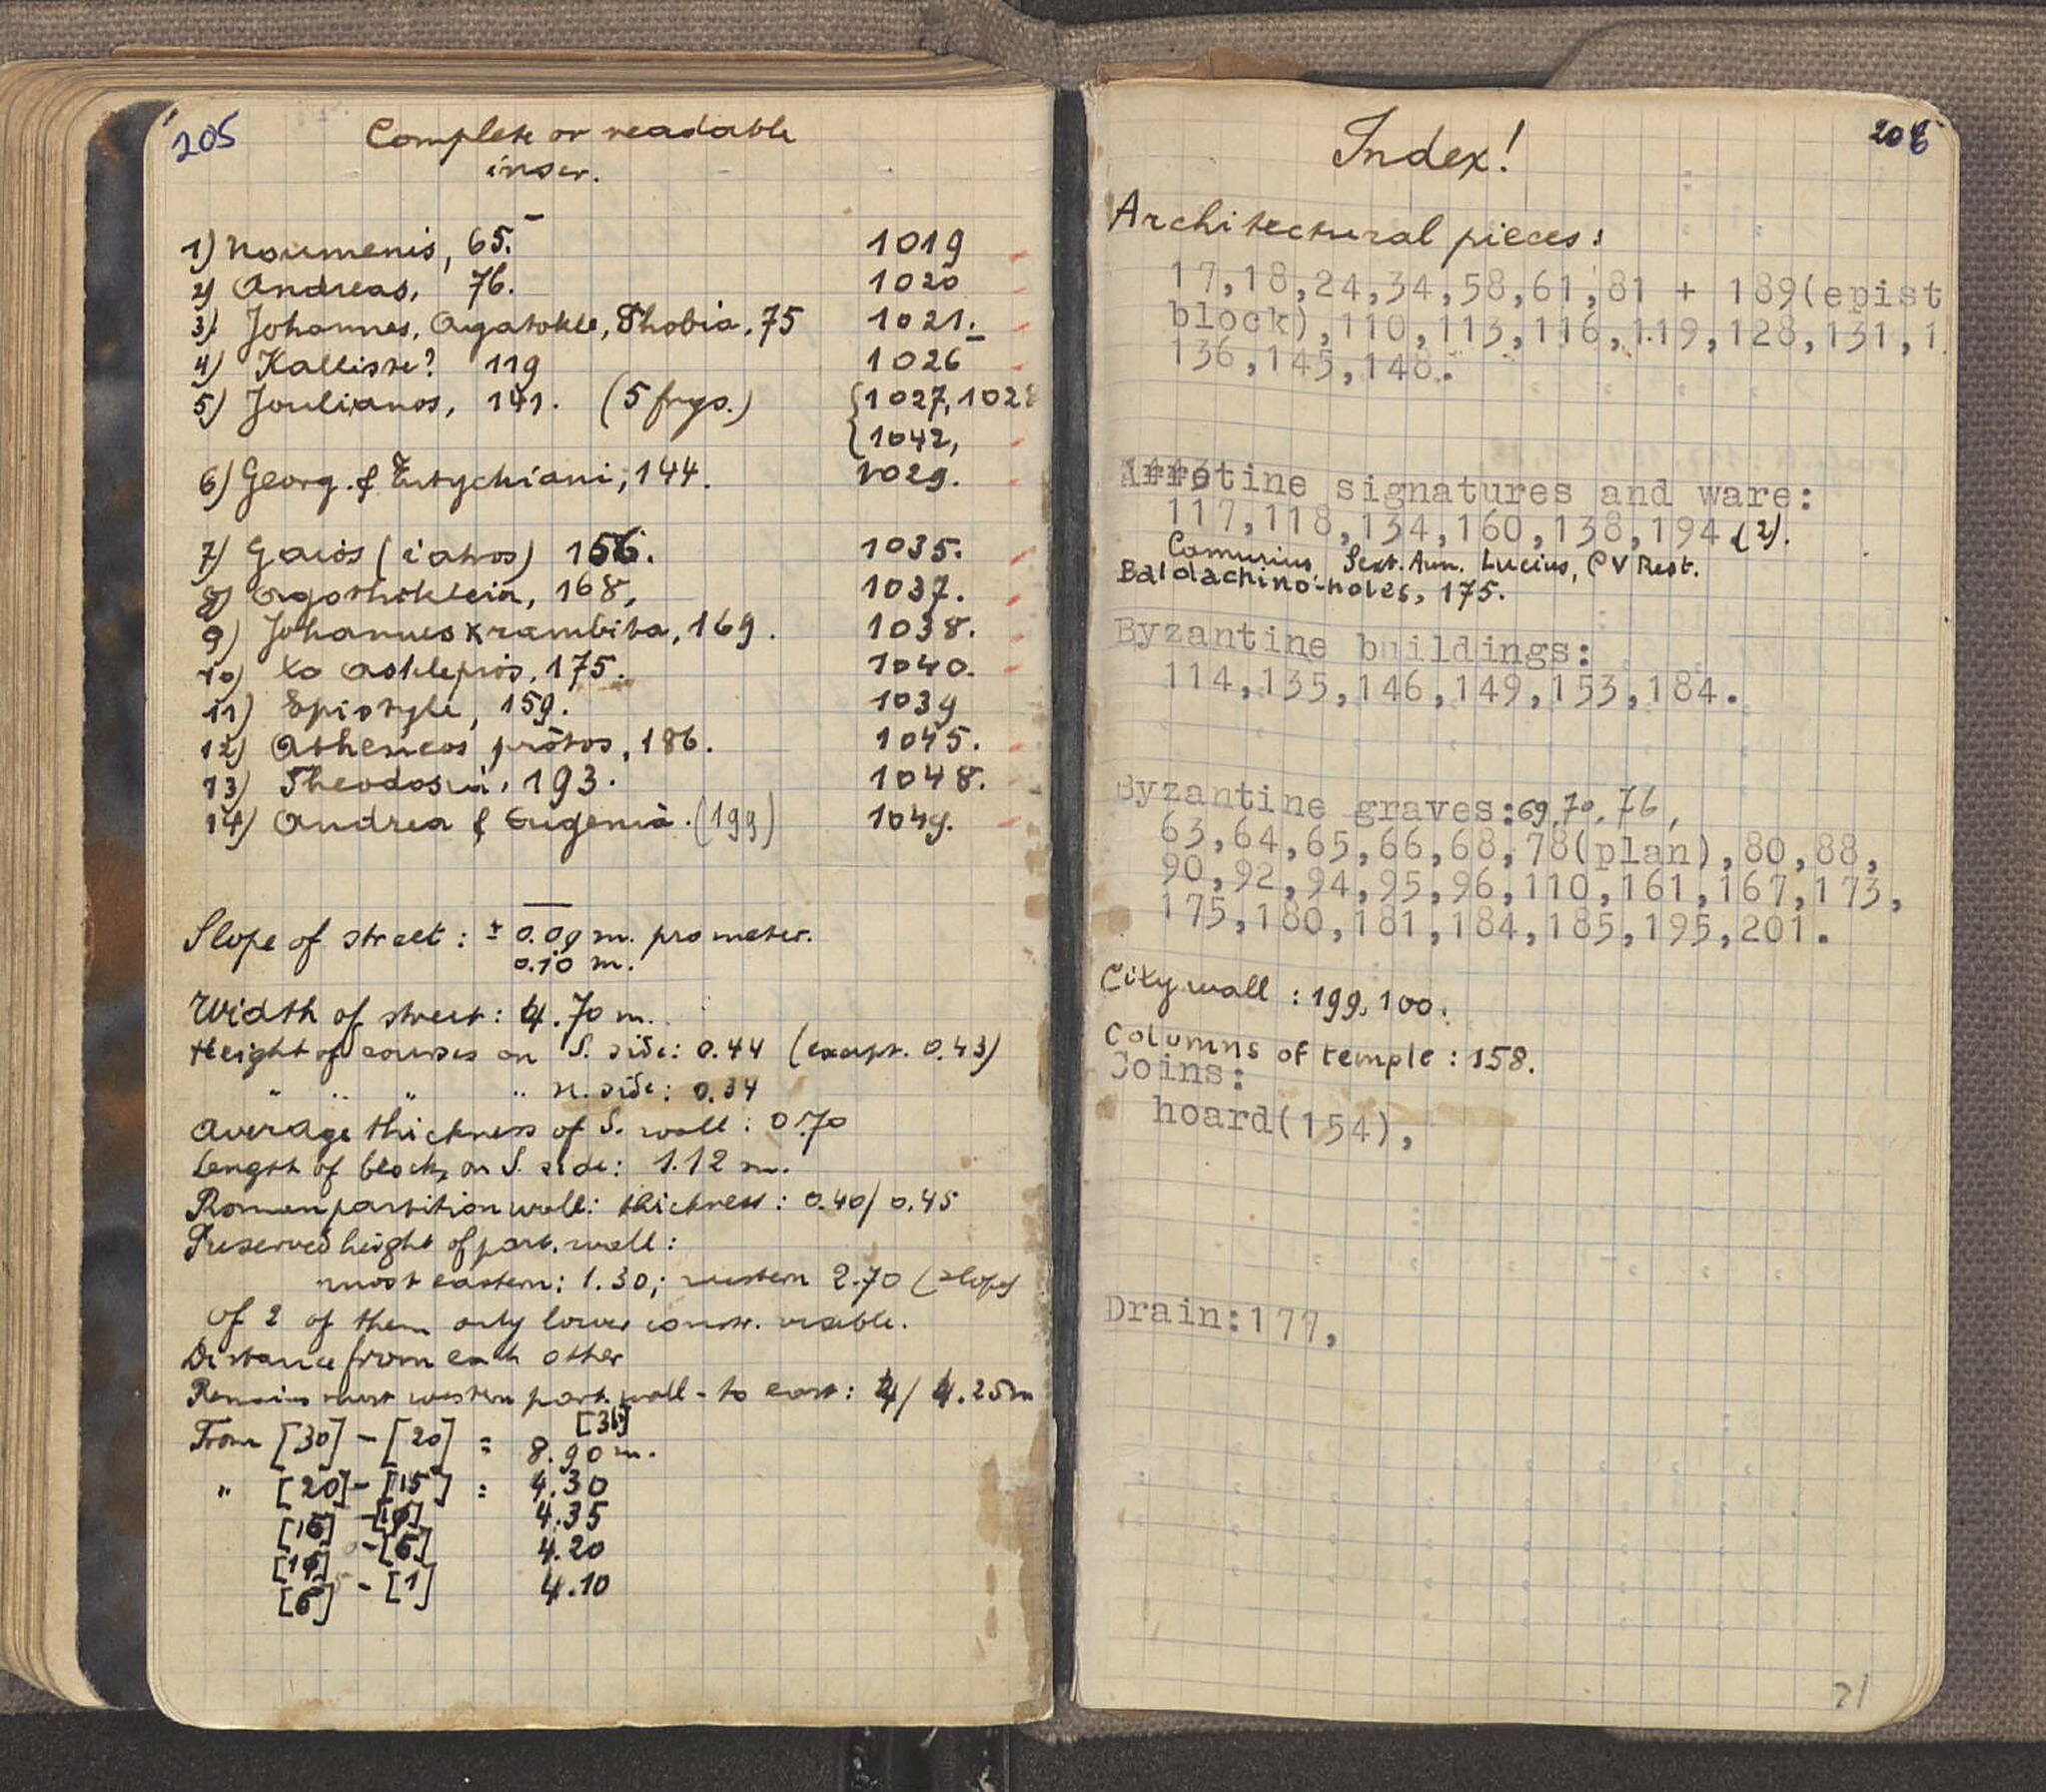 205
Complete or readable
inscr.
1) Noumenis, 65. 1019
2) Andreas, 76. 1020
3) Johannes, Agatokle, Phobia, 75 1021.
4) Kalliste? 119 1026
5) Joulianos, 141. (5 frgs.) {1027, 1028
{1042,
6) Georg. & Eutychiani, 144. 1029.
7) Gaios (iatros) 156. 1035.
8) Agathokleia, 168, 1037.
9) Johannes Krambita, 169. 1038.
10) to Asklepios, 175. 1040.
11) Epistyle, 159. 1039
12) Atheneos prôtos, 186. 1045.
13) Theodosia, 193. 1048.
14) Andrea & Eugenia. (199) 1049.
Slope of street: ± 0.09 m. pro meter.
0.10 m.
Width of street: 4.70 m.
Height of courses on S. side: 0.44 (except. 0.43)
" " " " N. side: 0.34
Average thickness of S. wall: 0.70
Length of blocks on S. side: 1.12 m.
Roman partition wall: thickness: 0.40/0.45
Preserved height of part. wall:
most eastern: 1.30; western 2.70 (slope)
Of 2 of them only lower constr. visible.
Distance from each other
Remains most western part. wall - to east: 4/4.25m
[36]
From [30] - [20] = 8.90 m.
" [20] - [15] = 4.30
[16] - [10] 4.35
[10] - [6] 4.20
[6] - [1] 4.10
206
Index!
Architectural pieces:
17,18,24,34,58,61,81 + 189(epist
block),110,113,116,119,128,131,1
136,145,148.
Arretine signatures and ware:
117,118,134,160,138,194.(2).
Camurius, Sext. Ann. Lucius, C V Rest.
Baldachino-holes, 175.
Byzantine buildings:
114,135,146,149,153,184.
Byzantine graves: 69,70,76,
63,64,65,66,68,78(plan),80,88,
90,92,94,95,96,110,161,167,173,
175,180,181,184,185,195,201.
City wall: 199,100.
Columns of temple: 158.
Coins:
hoard(154),
Drain:177,